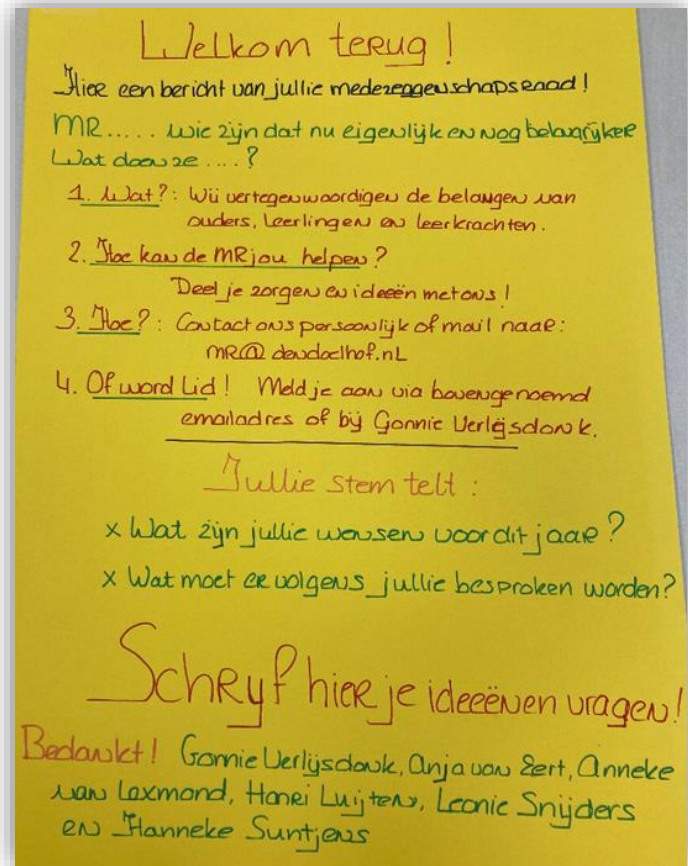 Welkom terug!
Hier een bericht van jullie medezeggenschapsraad!
MR..... wie zijn dat nu eigenlijk en nog belangrijker
Wat doen ze ....?
1. Wat?: Wij vertegenwoordigen de belangen van
ouders, leerlingen en leerkrachten.
2. Hoe kan de MR jou helpen?
Deel je zorgen en ideeën met ons!
3. Hoe?: Contact ons persoonlijk of mail naar:
MR@dendoelhof.nl
4. Of word Lid! Meld je aan via bovengenoemd
emailadres of bij Gonnie Verlijsdonk.
Jullie stem telt:
x Wat zijn jullie wensen voor dit jaar?
x Wat moet er volgens jullie besproken worden?
Schryf hier je ideeën en vragen!
Bedankt! Gonnie Verlijsdonk, Anja van Eert, Anneke
van Lexmond, Henri Luijten, Leonie Snijders
en Hanneke Suntjens